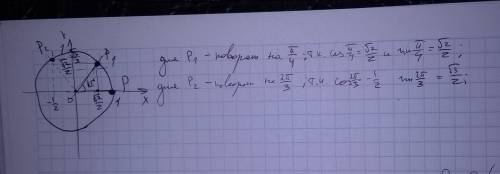 P₂ y 1 P₁
√3/2 √2/2
45° P
-1/2 0 √2/2 1 x
для P₁ - поворот на π/4, т.к. cos π/4 = √2/2 и sin π/4 = √2/2;
для P₂ - поворот на 2π/3, т.к. cos 2π/3 - 1/2 sin 2π/3 = √3/2;